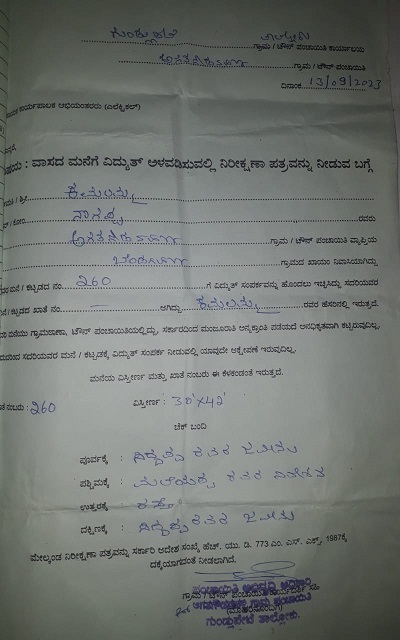 ಗುಂಡ್ಲುಪೇಟೆ ತಾಲ್ಲೂಕು
ಗ್ರಾಮ / ಟೌನ್ ಪಂಚಾಯಿತಿ ಕಾರ್ಯಾಲಯ
ಗ್ರಾಮ / ಟೌನ್ ಪಂಚಾಯಿತಿ
ದಿನಾಂಕ 13/09/2023
ಕಾರ್ಯಪಾಲಕ ಅಭಿಯಂತರರು (ಎಲೆಕ್ಟ್ರಿಕಲ್)
: ವಾಸದ ಮನೆಗೆ ವಿದ್ಯುತ್ ಅಳವಡಿಸುವಲ್ಲಿ ನಿರೀಕ್ಷಣಾ ಪತ್ರವನ್ನು ನೀಡುವ ಬಗ್ಗೆ
ಕಮಲಮ್ಮ
ನಾಗಪ್ಪ ರವರು
ಗ್ರಾಮ / ಟೌನ್ ಪಂಚಾಯಿತಿ ವ್ಯಾಪ್ತಿಯ
ಗ್ರಾಮದ ಖಾಯಂ ನಿವಾಸಿಯಾಗಿದ್ದು
ಮನೆ / ಕಟ್ಟಡದ ನಂ. 260 ಗೆ ವಿದ್ಯುತ್ ಸಂಪರ್ಕವನ್ನು ಹೊಂದಲು ಇಚ್ಛಿಸಿದ್ದು ಸದರಿಯವರ
/ ಕಟ್ಟಡದ ಖಾತೆ ನಂ ಆಗಿದ್ದು ಕಮಲಮ್ಮ ರವರ ಹೆಸರಿನಲ್ಲಿ ಇರುತ್ತದೆ.
ಮನೆಯು ಗ್ರಾಮಠಾಣಾ, ಟೌನ್ ಪಂಚಾಯಿತಿಯಲ್ಲಿದ್ದು, ಸರ್ಕಾರದಿಂದ ಮಂಜೂರಾತಿ ಪಡೆಯದೆ ಅನಧಿಕೃತವಾಗಿ ಕಟ್ಟಿರುವುದಿಲ್ಲ.
ಸದರಿಯವರ ಮನೆ / ಕಟ್ಟಡಕ್ಕೆ ವಿದ್ಯುತ್ ಸಂಪರ್ಕ ನೀಡುವಲ್ಲಿ ಯಾವುದೇ ಆಕ್ಷೇಪಣೆ ಇರುವುದಿಲ್ಲ.
ಮನೆಯ ವಿಸ್ತೀರ್ಣ ಮತ್ತು ಖಾತೆ ನಂಬರು ಈ ಕೆಳಕಂಡಂತೆ ಇರುತ್ತದೆ.
ನಂಬರು : 260 ವಿಸ್ತೀರ್ಣ : 30'x42'
ಚೆಕ್ ಬಂದಿ
ಪೂರ್ವಕ್ಕೆ : ಸಿದ್ದಪ್ಪ ರವರ ಜಮೀನು
ಪಶ್ಚಿಮಕ್ಕೆ : ರವರ ನಿವೇಶನ
ಉತ್ತರಕ್ಕೆ : ರಸ್ತೆ
ದಕ್ಷಿಣಕ್ಕೆ : ಸಿದ್ದಪ್ಪ ರವರ ಜಮೀನು
ಮೇಲ್ಕಂಡ ನಿರೀಕ್ಷಣಾ ಪತ್ರವನ್ನು ಸರ್ಕಾರಿ ಆದೇಶ ಸಂಖ್ಯೆ ಹೆಚ್. ಯು. ಡಿ. 773 ಎಂ. ಎನ್. ಎಕ್ಸ್. 1987ಕ್ಕೆ
ದಕ್ಕೆಯಾಗದಂತೆ ನೀಡಲಾಗಿದೆ.
ಪಂಚಾಯಿತಿ ಅಭಿವೃದ್ಧಿ ಅಧಿಕಾರಿ
ಗ್ರಾಮ ಪಂಚಾಯಿತಿ
ಗುಂಡ್ಲುಪೇಟೆ ತಾಲ್ಲೂಕು.